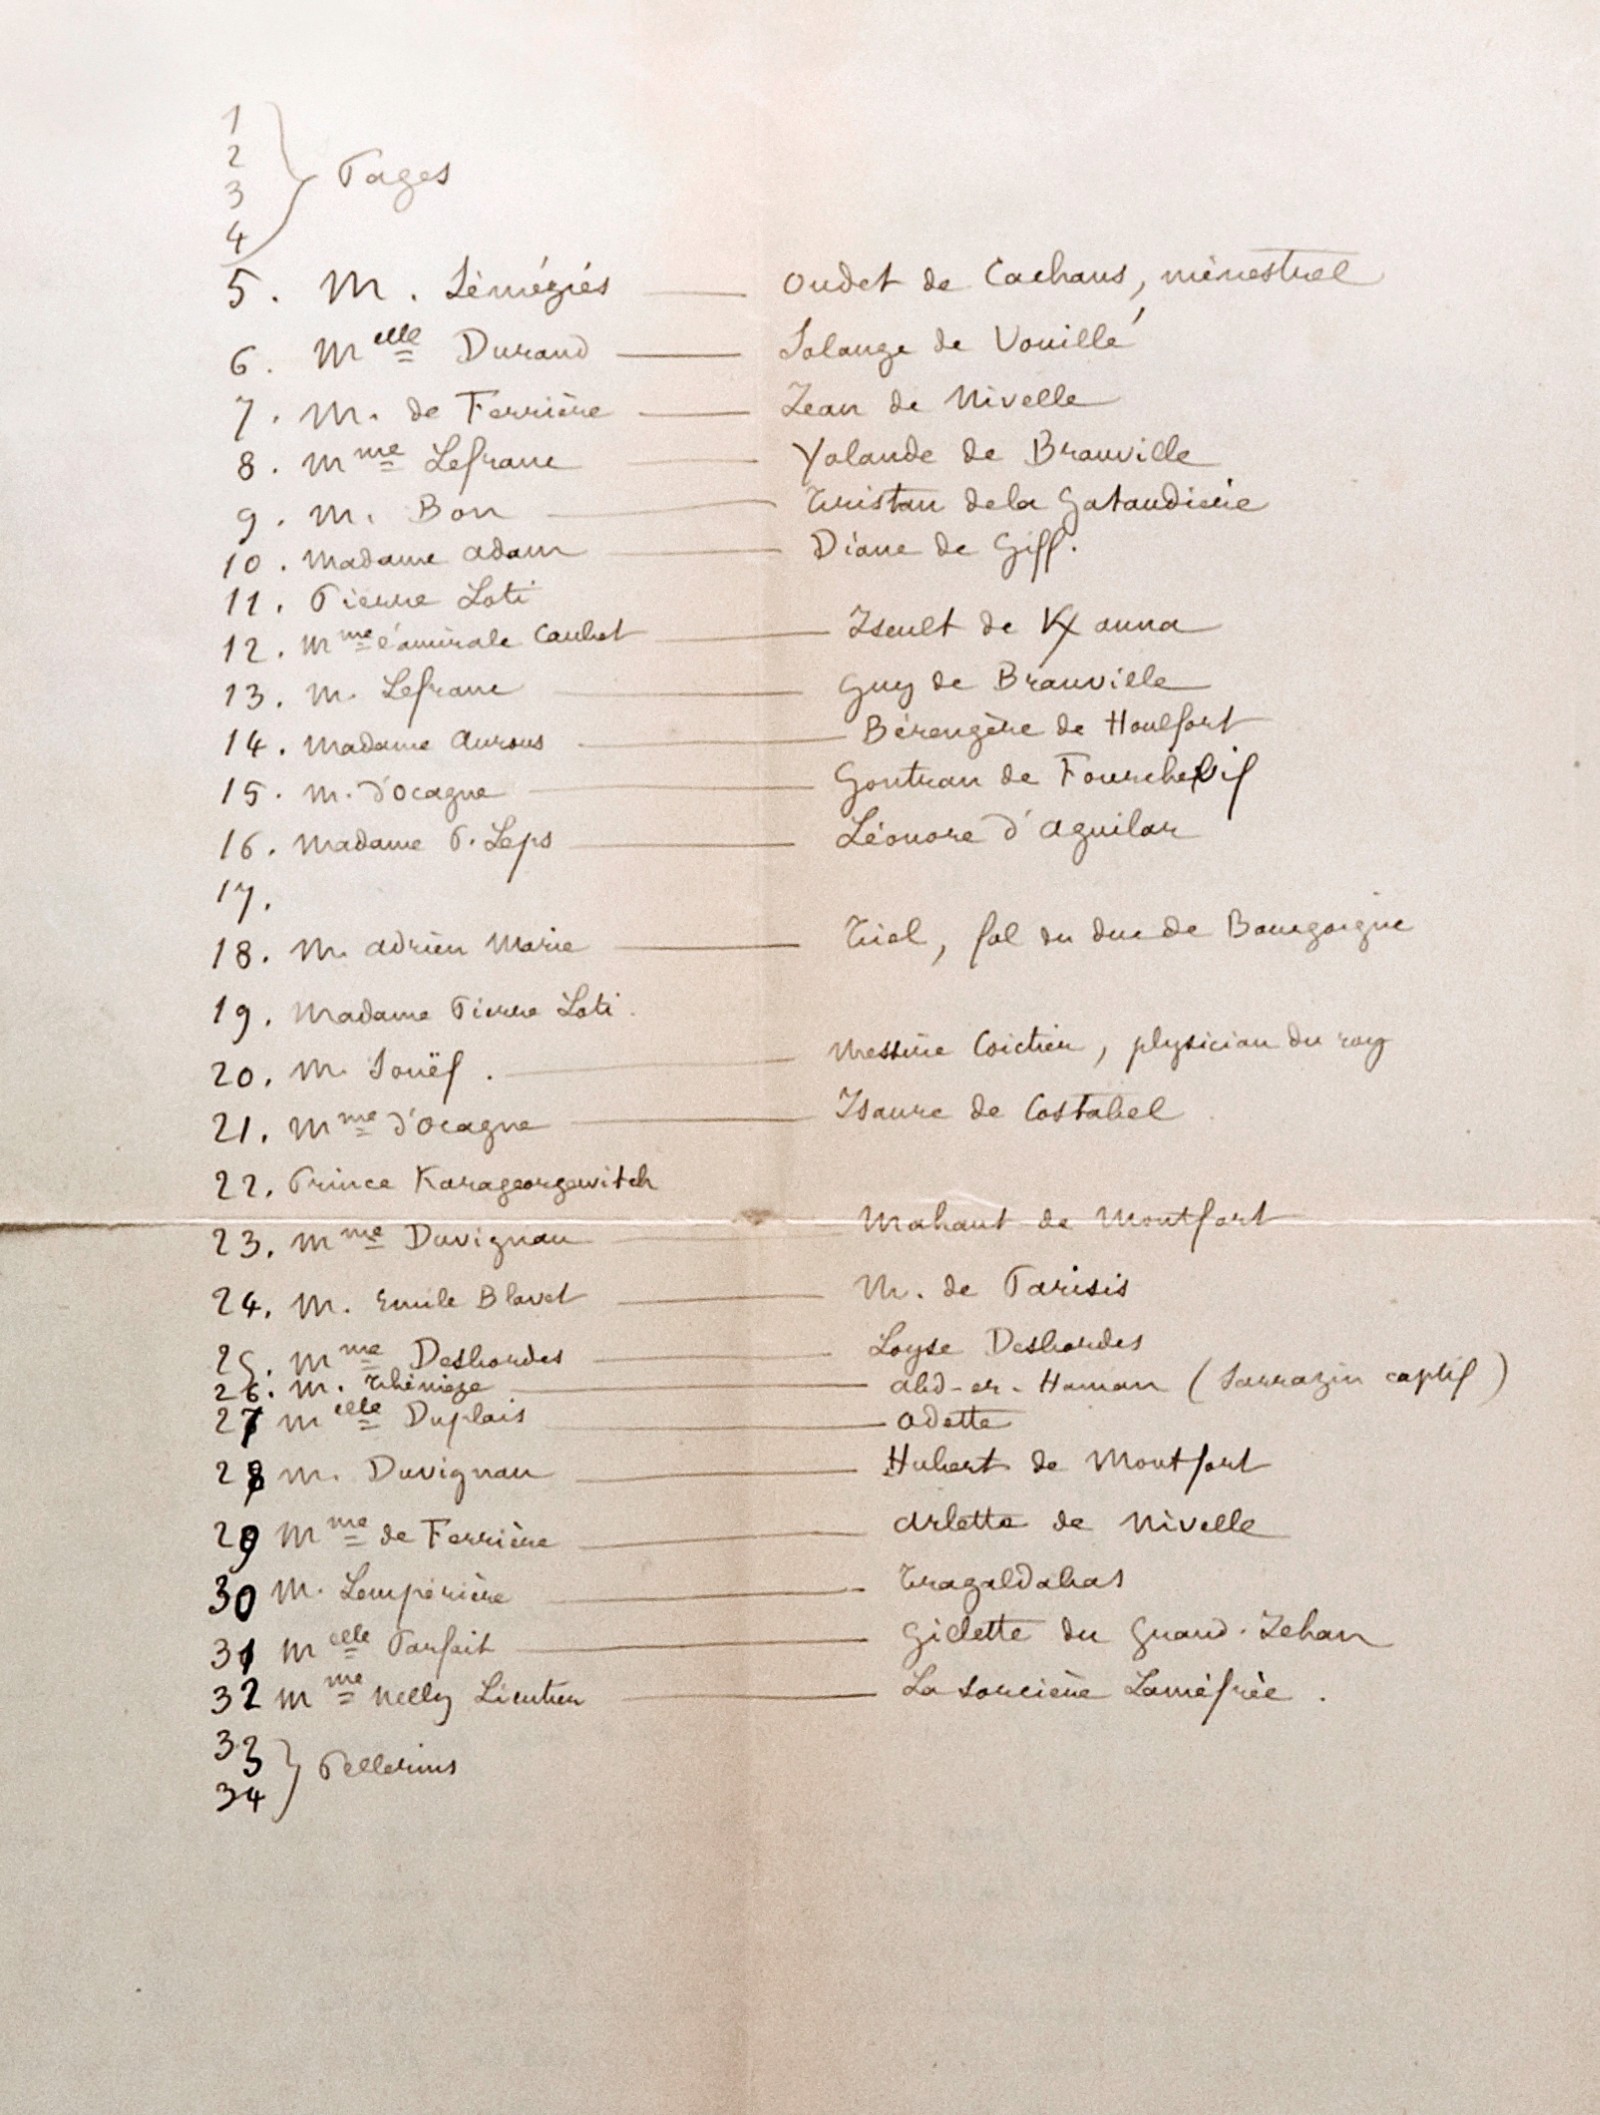 1
2
3
4
Pages
5. M. Séméziés — Oudet de Cachans, ménestrel
6. Melle Durand — Solange de Vouillé
7. M. de Ferrière — Jean de Nivelle
8. Mme Lefranc — Yolande de Branville
9. M. Bon — Tristan de la Gataudière
10. Madame Adam — Diane de Giff.
11. Pierre Loti
12. Mme l'amirale Caubet — Iseult de anna
13. M. Lefranc — Guy de Branville
14. Madame Aurous — Bérengère de Houlfort
15. M. d'Ocagne — Gontran de Fourchevif
16. Madame P. Leps — Léonore d'Aguilar
17.
18. M. Adrien Marie — Triel, fol du duc de Bourgoigne
19. Madame Pierre Loti.
20. M. Souëf. — Messire Coictier, physician du roy
21. Mme d'Ocagne — Isaure de Costabel
22. Prince Karageorgewitch
23. Mme Duvignau — Mahaut de Montfort
24. M. Emile Blavet — M. de Parisis
25. Mme Desbordes — Loyse Desbordes
26. M. — Abd-er-Haman (Sarrazin captif)
27 Melle Duplais — Odette
28 M. Duvignau — Hubert de Montfort
29 Mme de Ferrière — Arlette de Nivelle
30 M. Lempérière — Tragaldabas
31 Melle Parfait — Gillette du Grand-Jehan
32 Mme Nelly Lieutier — La sorcière Laméfrée.
33
34
Pellerins